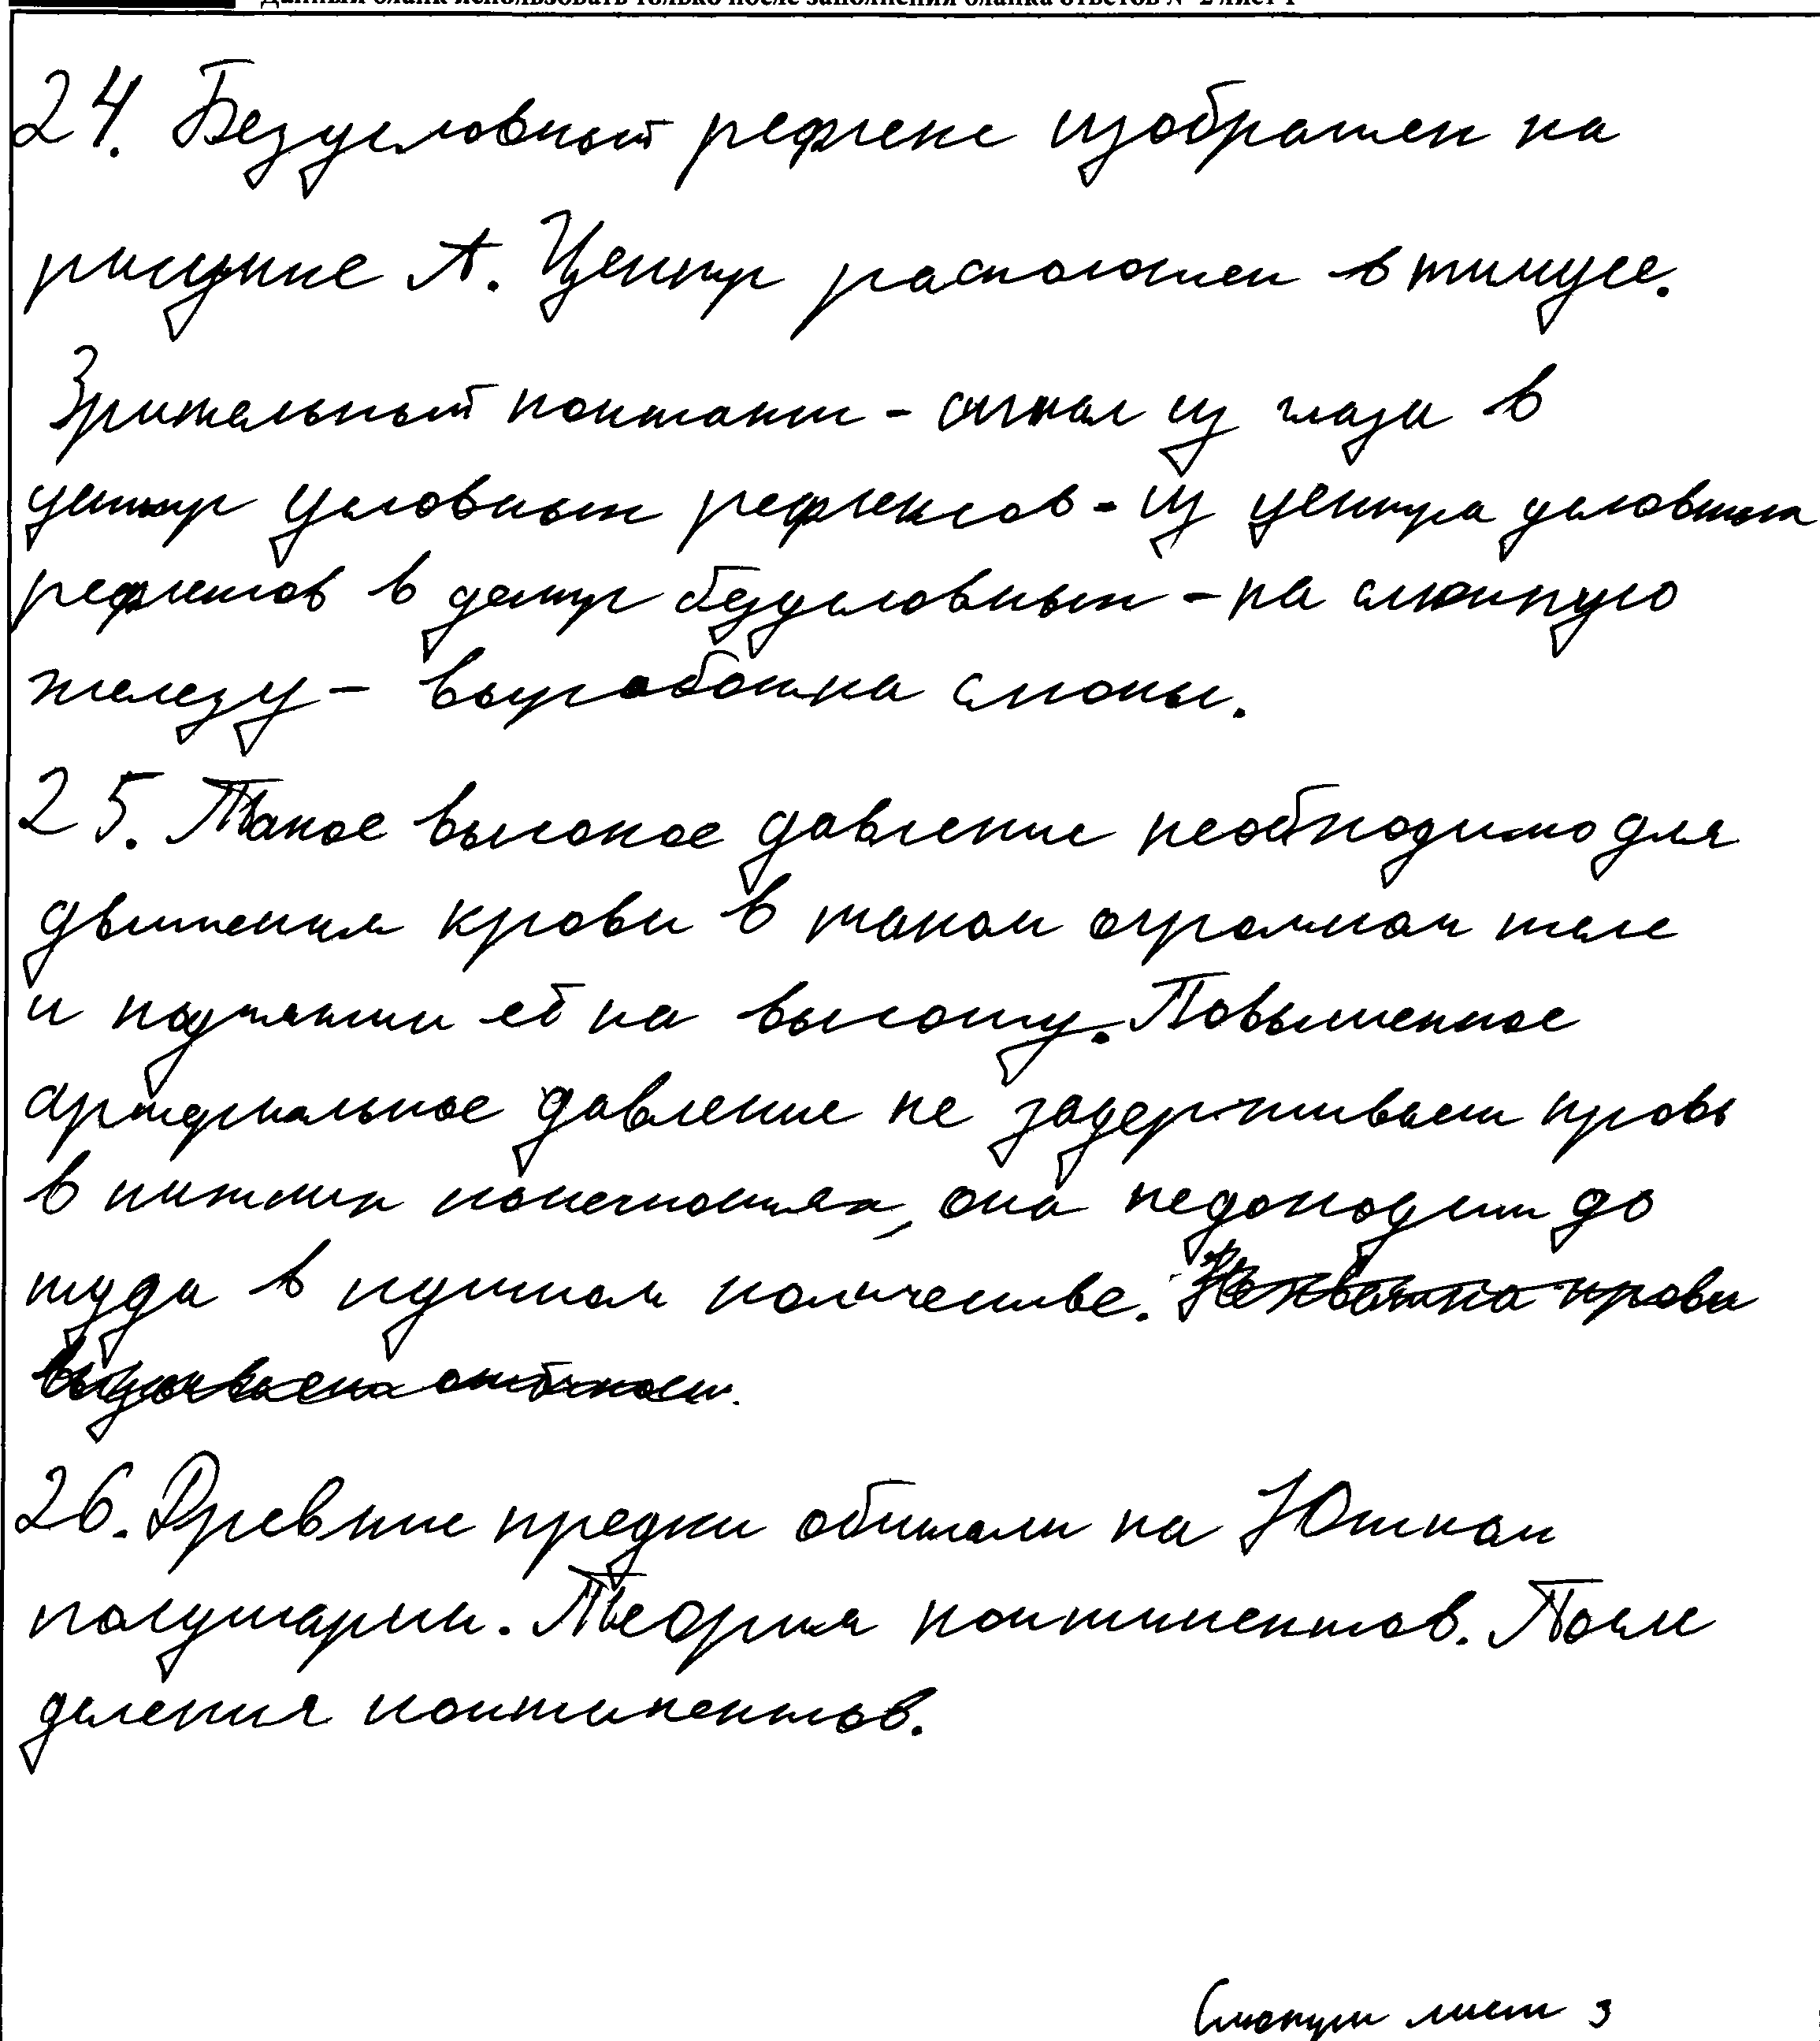 Данный бланк использовать только после заполнения бланка ответов № 2 лист 1
24. Безусловный рефлекс изображен на
рисунке А. Центр расположен в тимусе.
Зрительный контакт - сигнал из глаза в
центр условных рефлексов - из центра условных
рефлексов в центр безусловных - на слюнную
железу - выработка слюны.
25. Такое высокое давление необходимо для
движения крови в таком огромном теле
и поднятии её на высоту. Повышенное
артериальное давление не задерживает кровь
в нижних конечностях, она недоходит до
туда в нужном количестве. Нехватка крови
26. Древние предки обитали на Южном
полушарии. Теория континентов. После
деления континентов.
лист 3